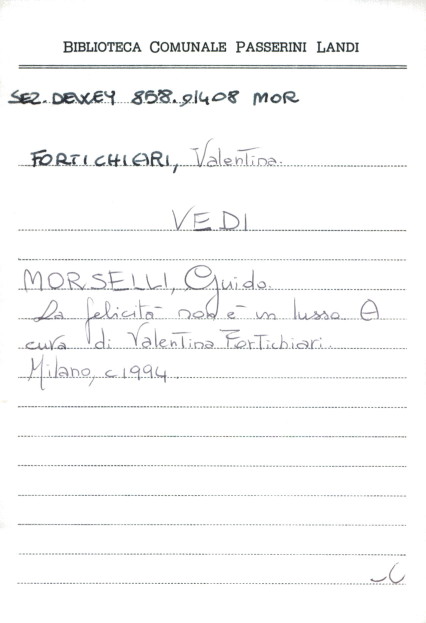 BIBLIOTECA COMUNALE PASSERINI LANDI
SEZ. DEWEY 858.91408 MOR
FORTICHIARI, Valentina.
VEDI
MORSELLI, Guido.
La felicità non è un lusso. A
cura di Valentina Fortichiari.
Milano, c1994.